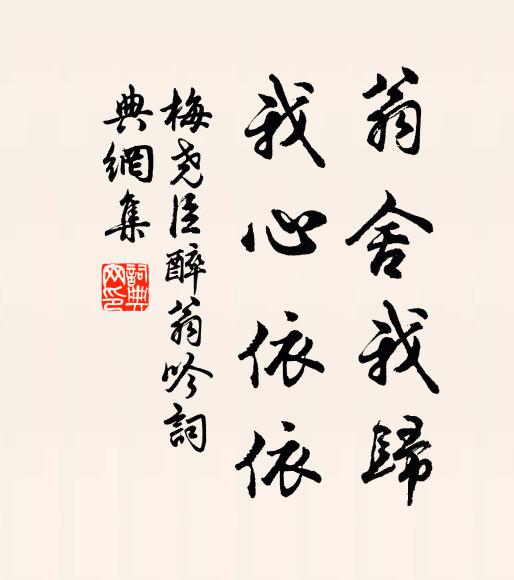 翁舍我歸
我心依依
梅堯臣醉翁吟詞
典網集
詞典
网印